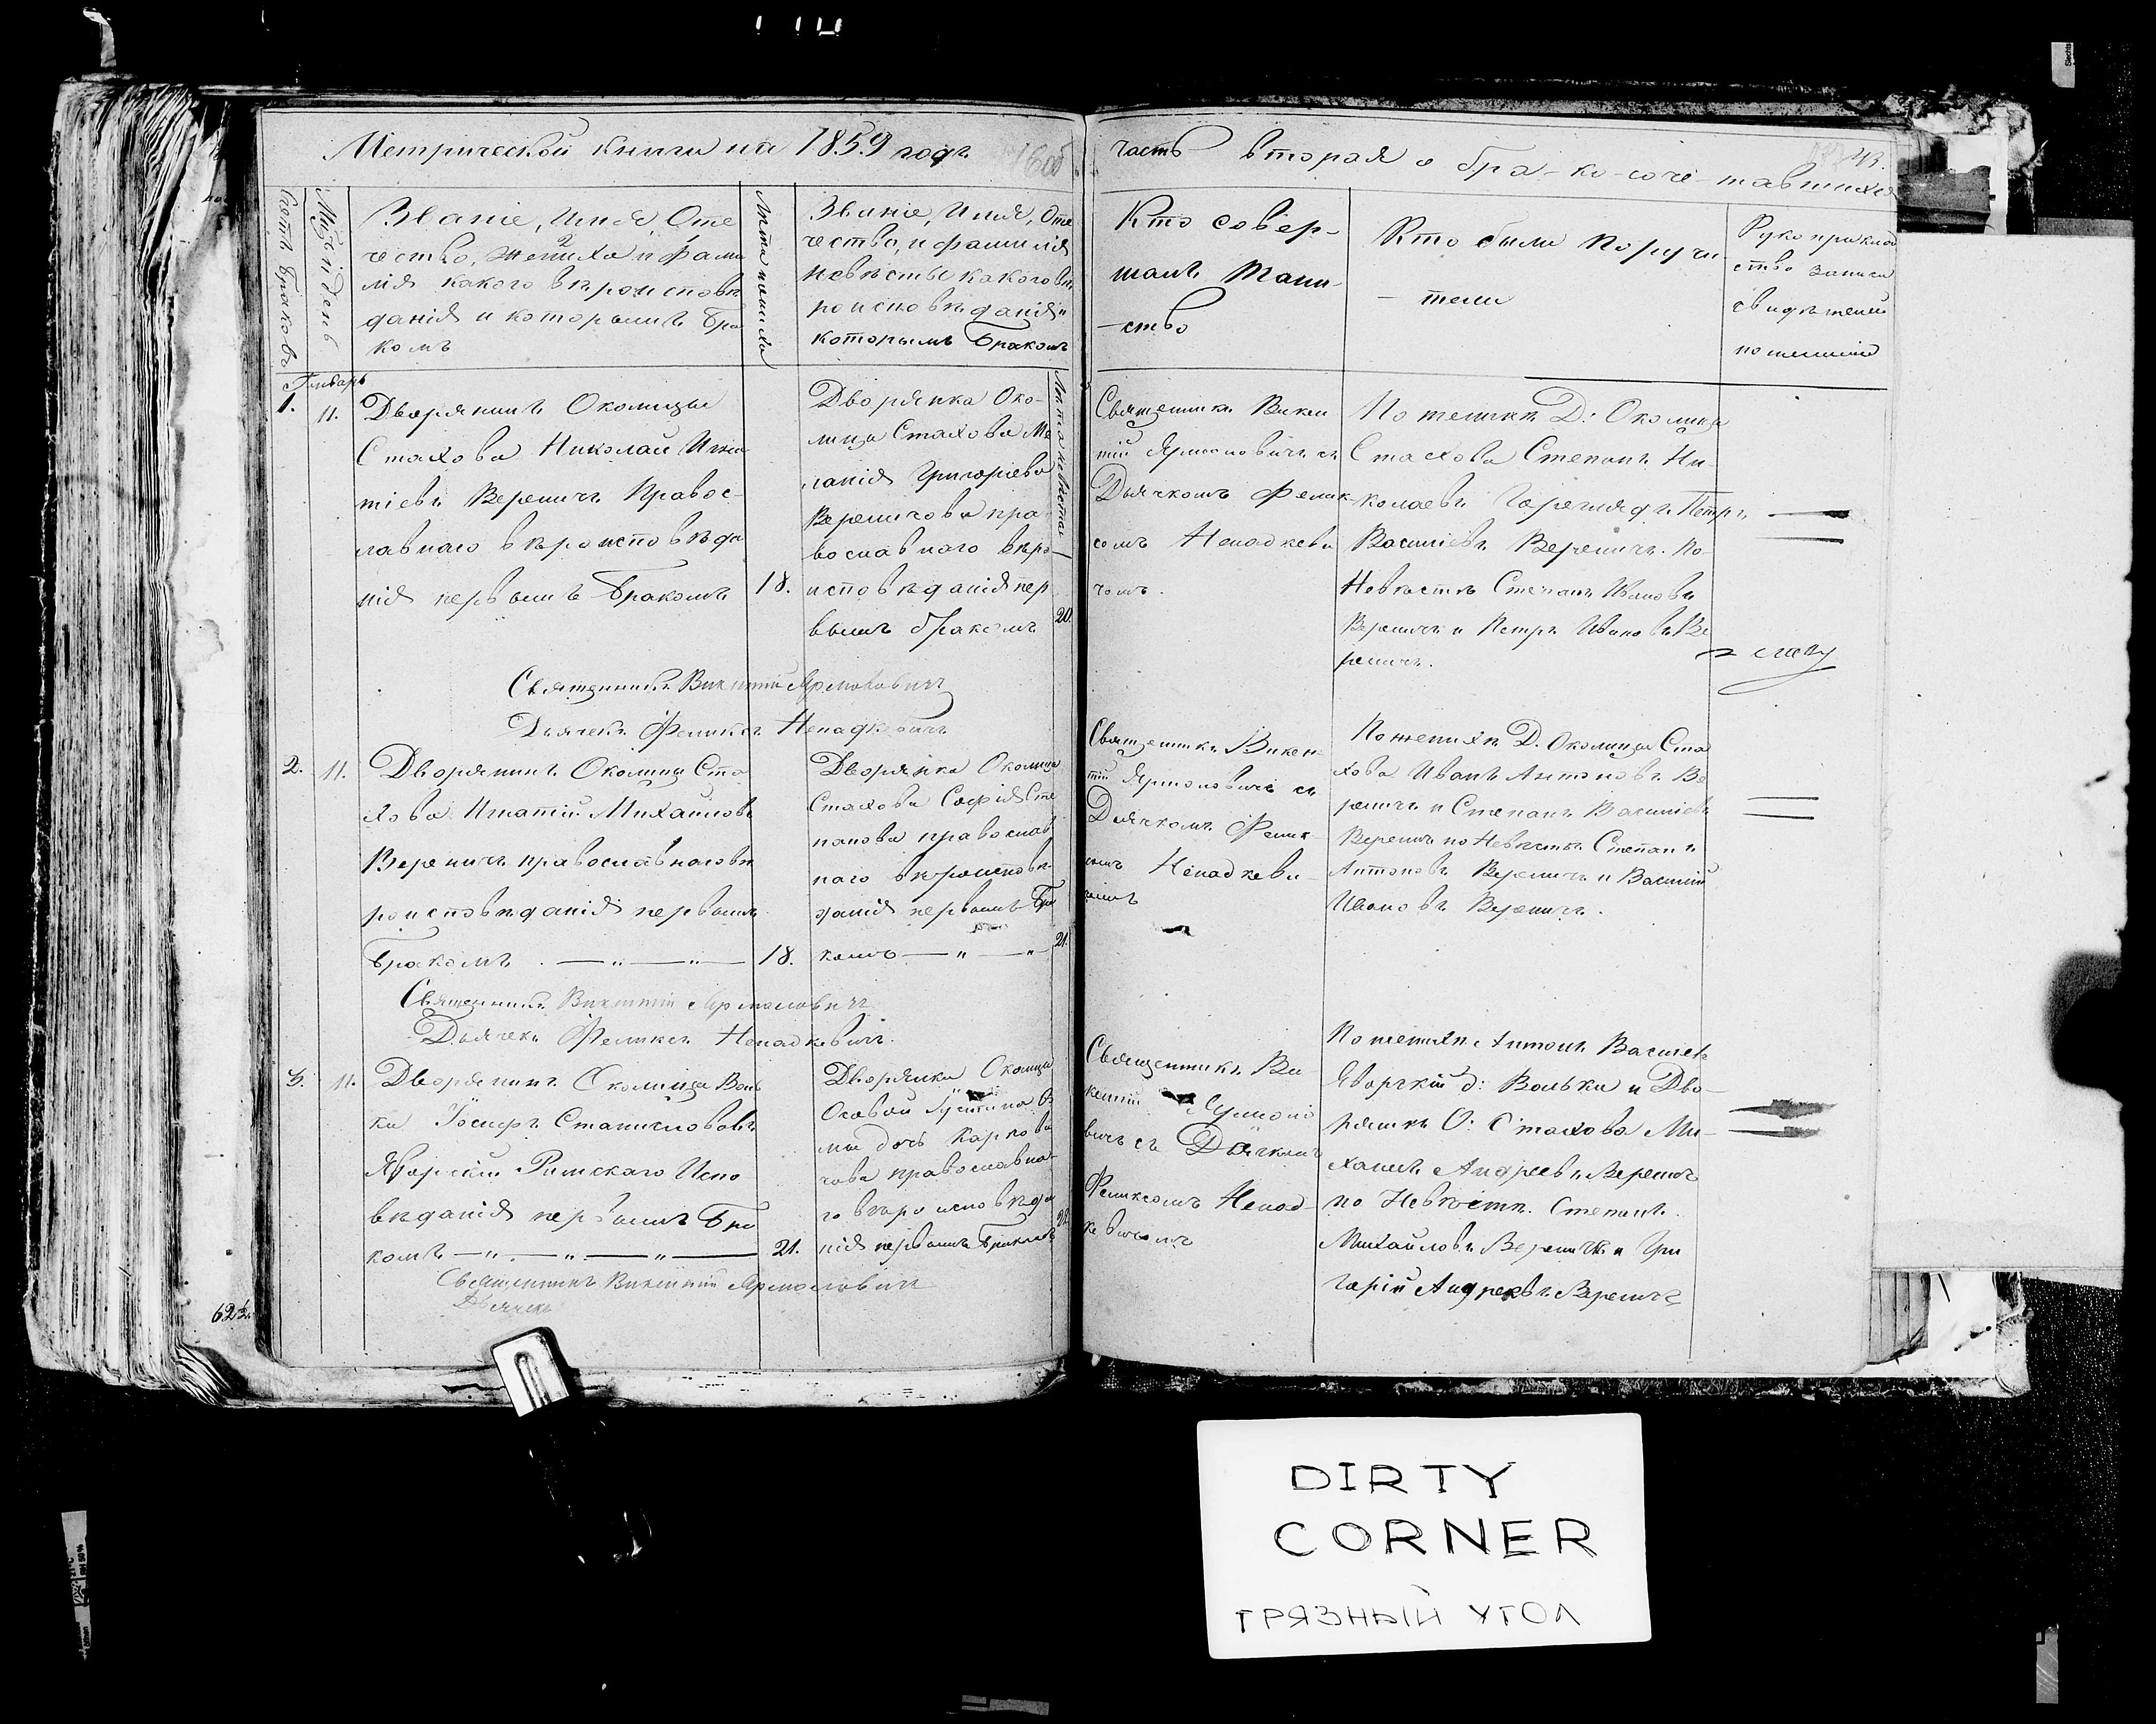 Метрической книги на 1859 годъ
часть вторая о бра-ко-соче-тавшихся
43.
Счетъ Браковъ
Мѣс. и день
Званіе, Имя, Оте
чество, жениха и фами
лія какого вѣроисповѣ
данія и которымъ Бра
комъ
Лѣта жениха
Званіе, Имя, Оте
чество, и фамилія
невѣсты какого вѣ
роисповѣданія и
которымъ Бракомъ
Лѣта невѣсты
Кто совер-
шалъ Таин-
-ство
Кто были Поручи-
-тели
Рукоприклад
ство записи
свидѣтелей
по желанію
Генварь
1.
11.
Дворянинъ Околицы
Стахова Николай Игна
тіевъ Вереничъ Правос-
лавнаго вѣроисповѣда
нія первымъ Бракомъ
18.
Дворянка Око-
лицы Стахова Ме
ланія Григоріева
Вереничова пра-
вославнаго вѣро
исповѣданія пер
вымъ бракомъ
20.
Священникъ Викен
тій Ярмоловичъ съ
Дьячкомъ Фелик-
сомъ Ненадкеви
чомъ.
По женихѣ Д: Околицы
Стахова Степанъ Ни-
колаевъ Петръ
Василіевъ Вереничъ. По
Невѣстѣ Степанъ Ивановъ
Вереничъ и Петръ Ивановъ Ве
реничъ.
Священникъ Викентій Ярмоловичъ
Дьячекъ Феликсъ Ненадкевичъ
2.
11.
Дворянинъ Околицы Ста
хова Игнатій Михайловъ
Вереничъ православнаго вѣ
роисповѣданія первымъ
Бракомъ . — „ — „ —
18.
Дворянка Околицы
Стахова Софія Сте
панова православ
наго вѣроисповѣ-
данія первымъ Бра
комъ — „ — „
21.
Священникъ Викен-
тій Ярмоловичъ съ
Дьячкомъ Фелик-
сомъ Ненадкеви-
чомъ
По женихѣ Д. Околицы Ста
хова Иванъ Антоновъ Ве
реничъ и Степанъ Василіевъ
Вереничъ по Невѣстѣ Степанъ
Антоновъ Вереничъ и Василій
Ивановъ Вереничъ.
Священникъ Викентій Ярмоловичъ
Дьячекъ Феликсъ Ненадкевичъ.
3.
11.
Дворянинъ Околицы Воль
ки Іосифъ Станиславовъ
Яворскій Римскаго Испо
вѣданія первымъ Бра
комъ — „ — „ — „ —
21.
Дворянка Околицы
Осовой
дочь Карпова
православна-
го вѣроисповѣда
нія первымъ Бракомъ
22.
Священникъ Ви
кентій Ярмоло
вичъ съ Дьячкомъ
Феликсомъ Ненад-
кевичомъ
По женихѣ Антонъ Василевъ
Яворскій д: Вольки и Дво-
рянинъ О: Стахова Ми-
хаилъ Андреевъ Вереничъ
по Невѣстѣ. Степанъ
Михайловъ Вереничъ и Гри
горій Андреевъ Вереничъ
Священникъ Викентій Ярмоловичъ
Дьячекъ
DIRTY
CORNER
ГРЯЗНЫЙ УГОЛ